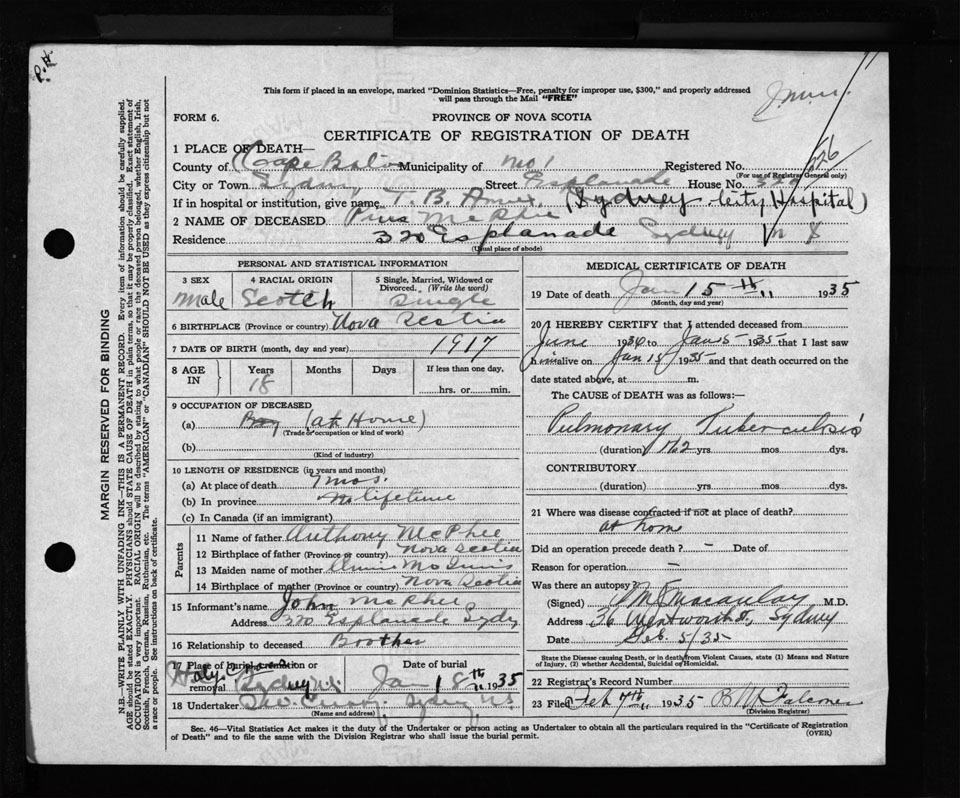 P.H.
This form if placed in an envelope, marked "Dominion Statistics—Free, penalty for improper use, $300," and properly addressed
will pass through the Mail "FREE"
FORM 6.
PROVINCE OF NOVA SCOTIA
CERTIFICATE OF REGISTRATION OF DEATH
1 PLACE OF DEATH—
County of Cape Breton Municipality of No 1 Registered No.
(For use of Registrar General only)
City or Town Sydney Street Esplanade House No. 320
If in hospital or institution, give name T. B. Annex (Sydney City Hospital)
2 NAME OF DECEASED Pius McPhee
Residence 320 Esplanade Sydney N S
(Usual place of abode)
PERSONAL AND STATISTICAL INFORMATION
3 SEX Male
4 RACIAL ORIGIN Scotch
5 Single, Married, Widowed or Divorced. (Write the word) Single
6 BIRTHPLACE (Province or country) Nova Scotia
7 DATE OF BIRTH (month, day and year) 1917
8 AGE IN Years 18 Months Days If less than one day, hrs. or min.
9 OCCUPATION OF DECEASED
(a) Boy (at Home)
(Trade or occupation or kind of work)
(b)
(Kind of industry)
10 LENGTH OF RESIDENCE (in years and months)
(a) At place of death 7 mos.
(b) In province lifetime
(c) In Canada (if an immigrant)
Parents
11 Name of father Anthony McPhee
12 Birthplace of father (Province or country) Nova Scotia
13 Maiden name of mother Annie McInnis
14 Birthplace of mother (Province or country) Nova Scotia
15 Informant's name John McPhee
Address 320 Esplanade Sydney
16 Relationship to deceased Brother
17 Place of burial, cremation or removal Holy Cross Sydney N.S. Date of burial Jan 18th 1935
18 Undertaker Sydney N.S.
(Name and address)
MEDICAL CERTIFICATE OF DEATH
19 Date of death Jan 15th 1935
(Month, day and year)
20 I HEREBY CERTIFY that I attended deceased from
June 1934 to Jan 5 1935 that I last saw
him alive on Jan 15 1935 and that death occurred on the
date stated above, at m.
The CAUSE of DEATH was as follows:—
Pulmonary Tuberculosis
(duration) 1 1/2 yrs. mos. dys.
CONTRIBUTORY
(duration) yrs. mos. dys.
21 Where was disease contracted if not at place of death?
at home
Did an operation precede death? - Date of
Reason for operation -
Was there an autopsy?
(Signed) Macaulay M.D.
Address 26 Wentworth St., Sydney
Date Feb 5/35
State the Disease causing Death, or in death from Violent Causes, state (1) Means and Nature
of Injury, (2) whether Accidental, Suicidal or Homicidal.
22 Registrar's Record Number
23 Filed Feb 7th 1935 Falconer
(Division Registrar)
Sec. 46—Vital Statistics Act makes it the duty of the Undertaker or person acting as Undertaker to obtain all the particulars required in the "Certificate of Registration
of Death" and to file the same with the Division Registrar who shall issue the burial permit.
(OVER)
MARGIN RESERVED FOR BINDING
N.B.—WRITE PLAINLY WITH UNFADING INK—THIS IS A PERMANENT RECORD. Every item of information should be carefully supplied.
AGE should be stated EXACTLY. PHYSICIANS should STATE CAUSE OF DEATH in plain terms, so that it may be properly classified. Exact statement of
OCCUPATION is very important. RACIAL ORIGIN will be described by stating to what people or race the deceased person belonged, whether English, Irish,
Scottish, French, German, Russian, Ruthenian, etc. The terms "AMERICAN" or "CANADIAN" SHOULD NOT BE USED as they express citizenship but not
a race or people. See instructions on back of certificate.